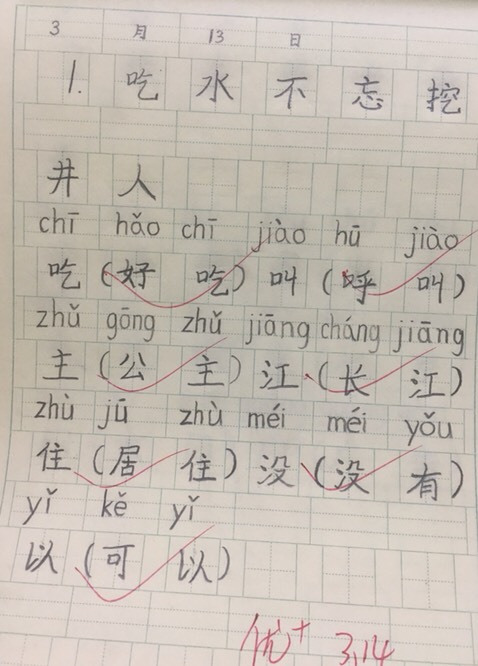 3 月 13 日
1. 吃水不忘挖
井人
chī hǎo chī jiào hū jiào
吃(好吃)叫(呼叫)
zhǔ gōng zhǔ jiāng cháng jiāng
主(公主)江(长江)
zhù jū zhù méi méi yǒu
住(居住)没(没有)
yǐ kě yǐ
以(可以)
优+ 3.14